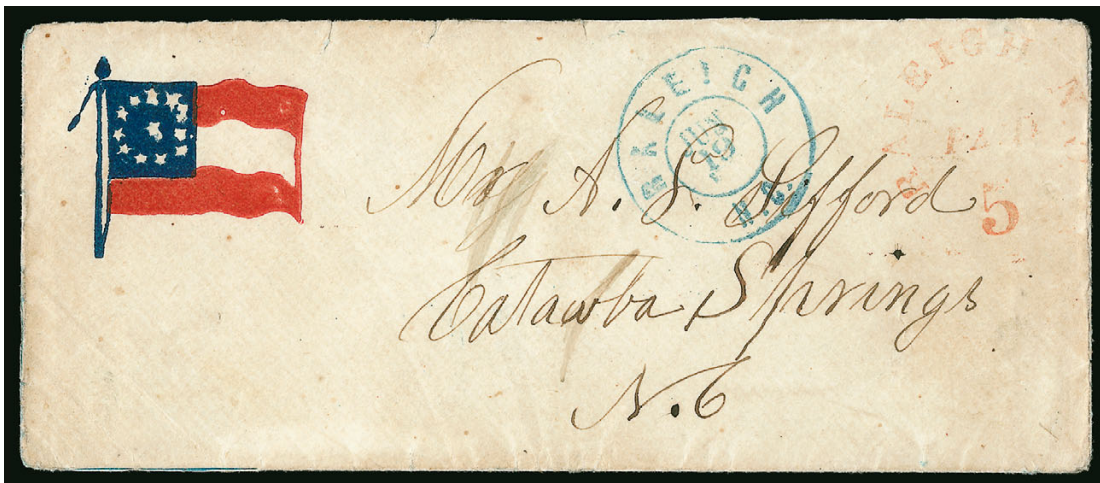 RALEIGH
N.C.
JUN
19
RALEIGH N
PAID
5
Mrs A. S. Lifford
Catawba Springs
N.C